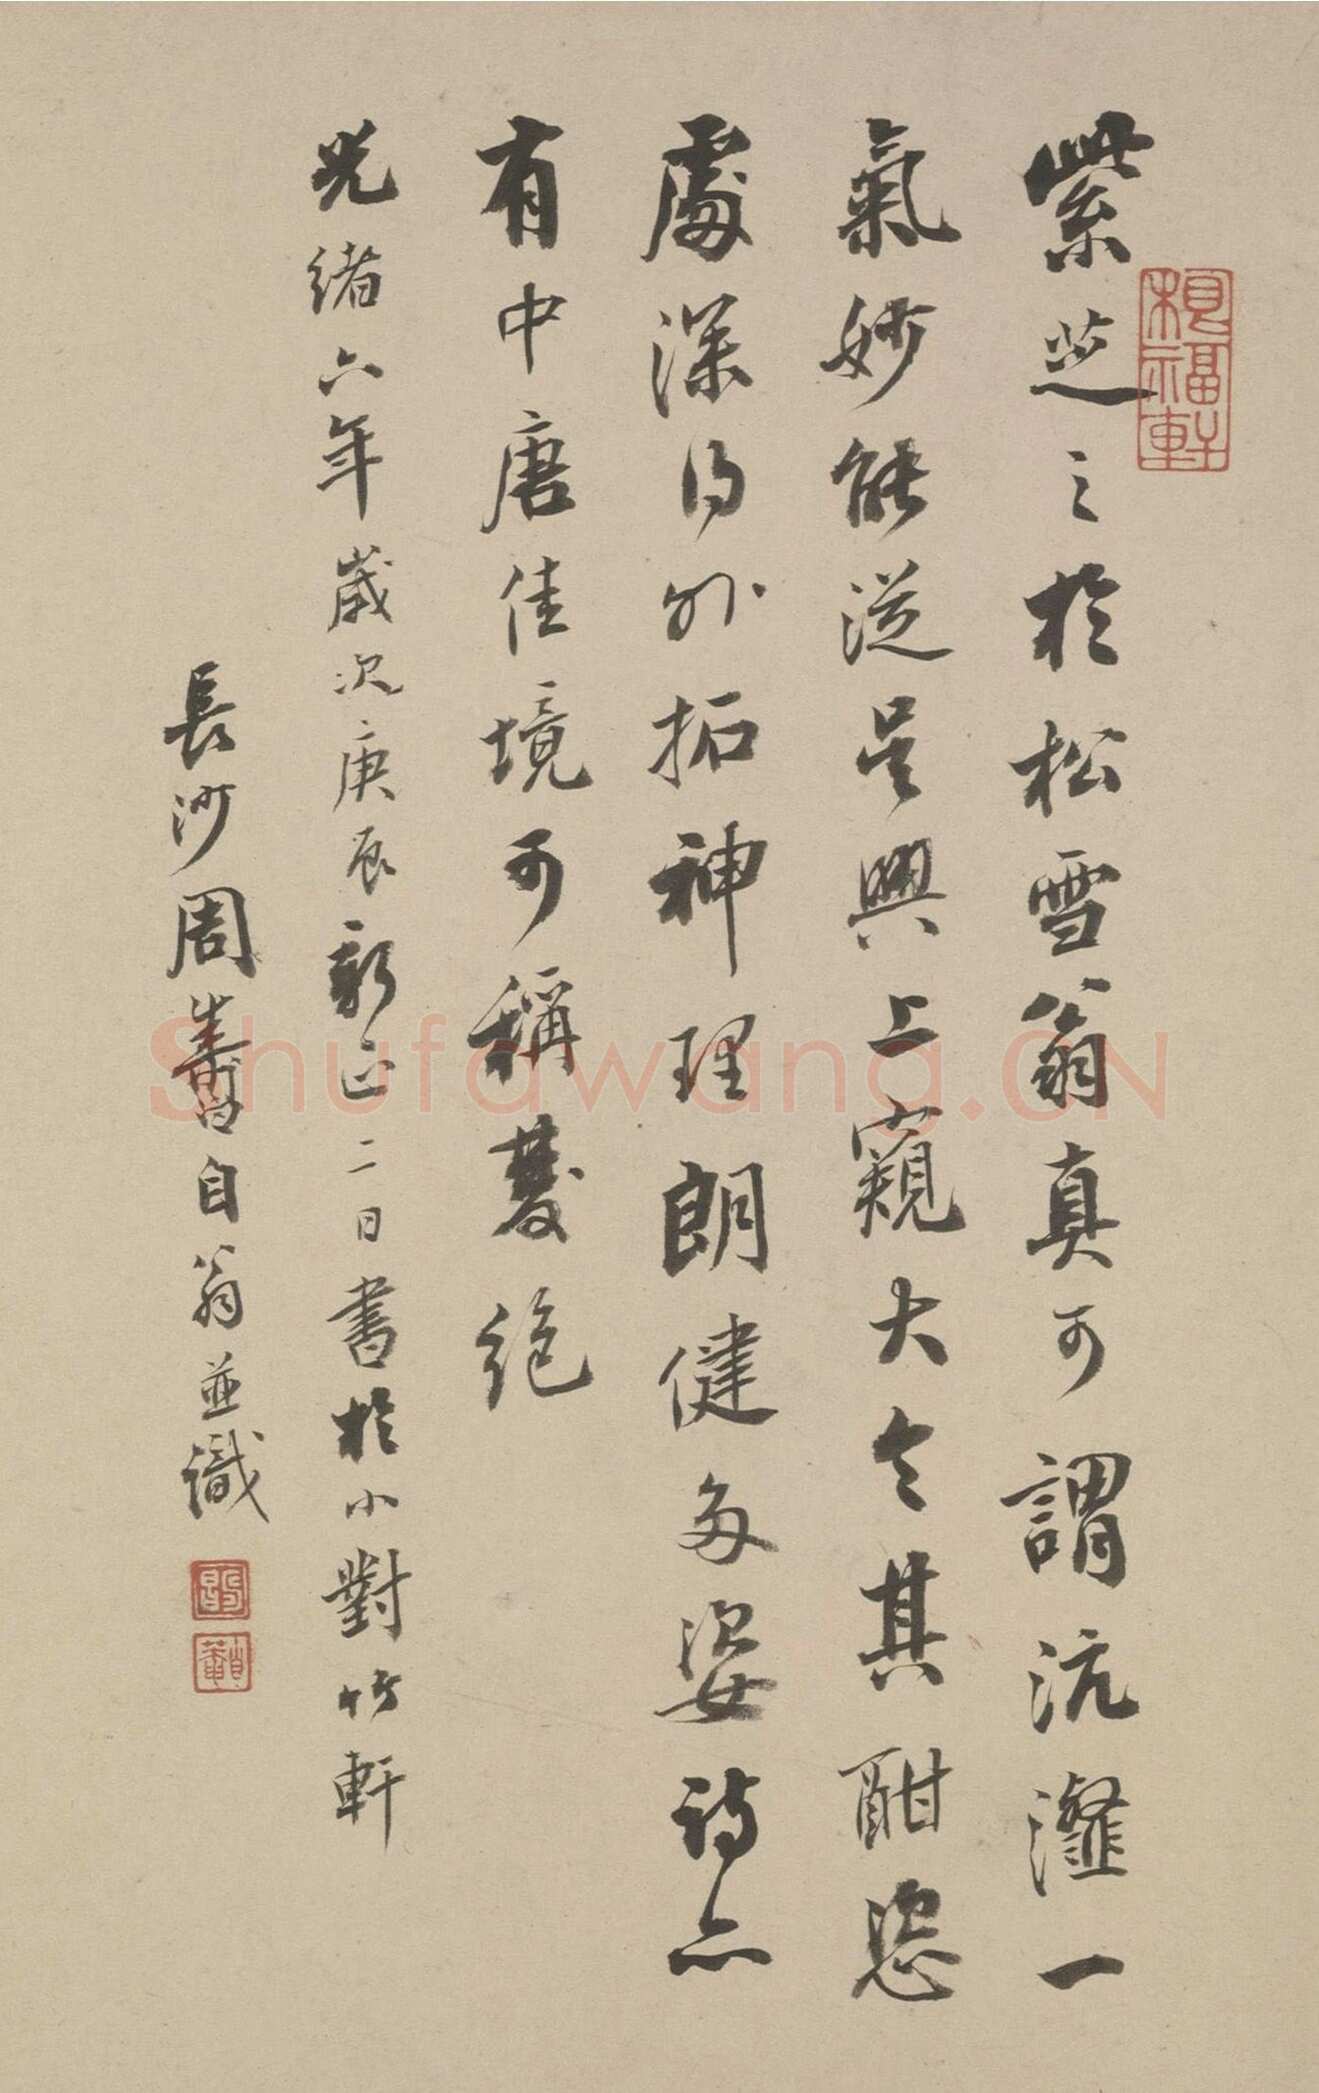 紫芝之於松雪翁真可謂沆瀣一
氣妙能從吳興上窺大令其酣恣
處深得外拓神理朗健多姿詩亦
有中唐佳境可稱雙絕
光緒六年歲次庚辰新正二日書於小對竹軒
長沙周壽昌自翁並識
shufawang.CN